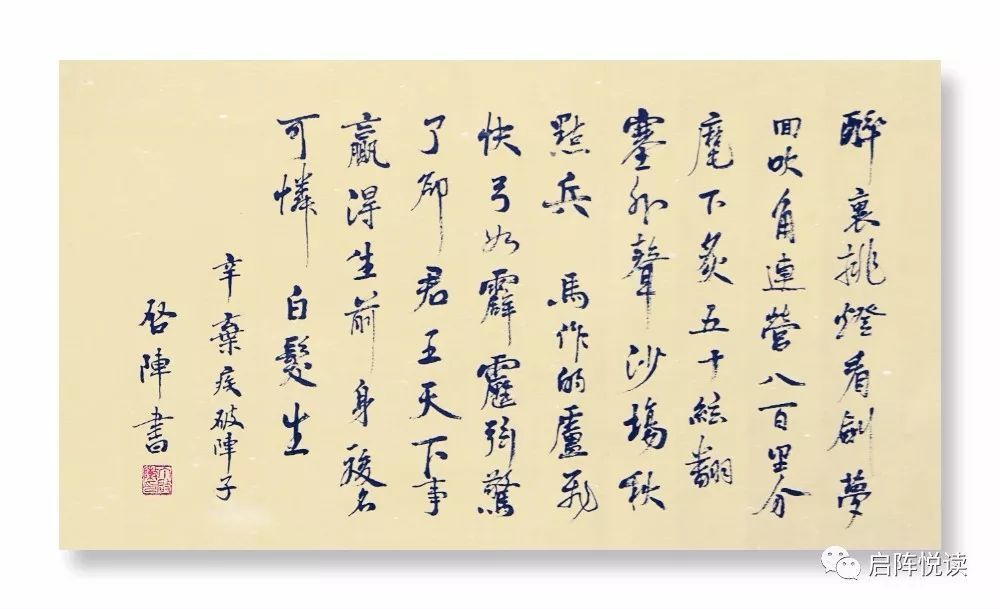 醉裏挑燈看劍夢
回吹角連營八百里分
麾下炙五十絃翻
塞外聲沙場秋
點兵 馬作的盧飛
快弓如霹靂弦驚
了却君王天下事
贏得生前身後名
可憐白髮生
辛棄疾破陣子
啓陣書
启阵悦读